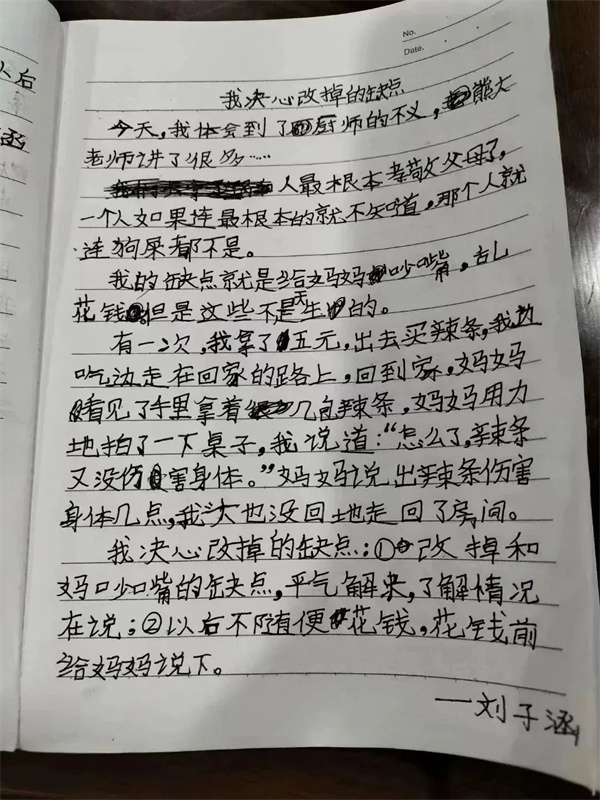 No.
Date.
我决心改掉的缺点
今天,我体会到了厨师的不义,熊大
老师讲了很多……
人最根本孝敬父母了,
一个人如果连最根本的就不知道,那个人就
连狗屎都不是。
我的缺点就是给妈妈吵嘴,乱
花钱,但是这些不是天生的。
有一次,我拿了五元,出去买辣条,我边
吃边走在回家的路上,回到家,妈妈
看见了手里拿着几包辣条,妈妈用力
地拍了一下桌子,我说道:“怎么了,辣条
又没伤害身体。”妈妈说出辣条伤害
身体几点,我头也没回地走回了房间。
我决心改掉的缺点:①改掉和
妈吵嘴的缺点,平气解决,了解情况
在说;②以后不随便花钱,花钱前
给妈妈说下。
——刘子涵
人后
涵